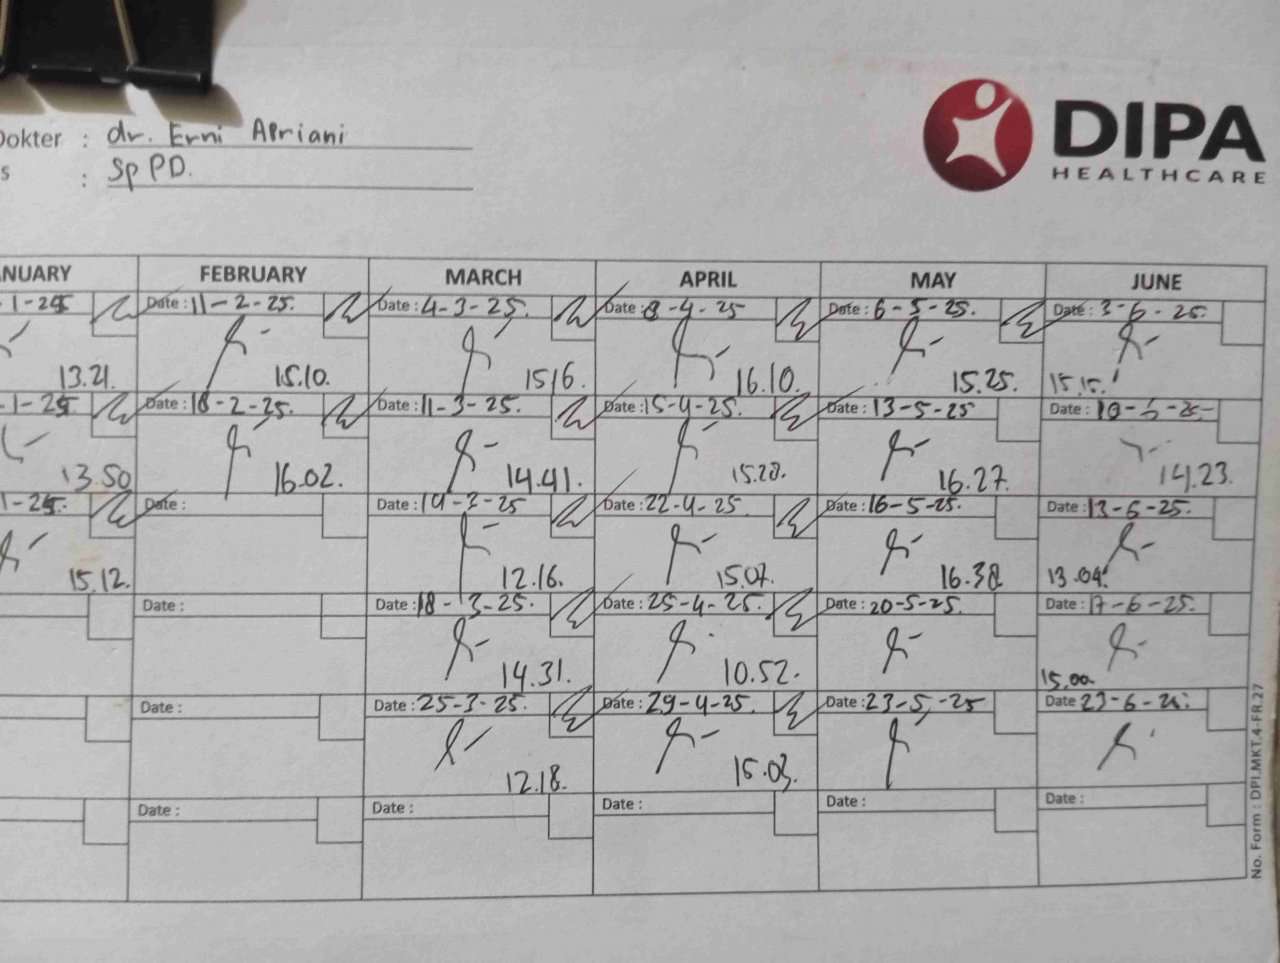 Dokter : dr. Erni Apriani
s : Sp PD.
DIPA
HEALTHCARE
NUARY FEBRUARY MARCH APRIL MAY JUNE
-1-25 Date : 11-2-25. Date : 4-3-25. Date : 8-4-25 Date : 6-5-25. Date : 3-6-25.
13.21. 15.10. 1516. 16.10. 15.25. 15.15.
-1-25 Date : 18-2-25. Date : 11-3-25. Date : 15-4-25. Date : 13-5-25 Date : 10-6-25-
13.50 16.02. 14.41. 15.28. 16.27. 14.23.
1-25. Date : Date : 14-3-25 Date : 22-4-25. Date : 16-5-25. Date : 13-6-25.
15.12. 12.16. 15.07. 16.38 13.04.
Date : Date : 18-3-25. Date : 25-4-25. Date : 20-5-25. Date : 17-6-25.
14.31. 10.52. 15.00
Date : Date : 25-3-25. Date : 29-4-25. Date : 23-5-25 Date 23-6-25.
12.18. 15.03.
Date : Date : Date : Date : Date :
No. Form : DPI.MKT.4-FR.27